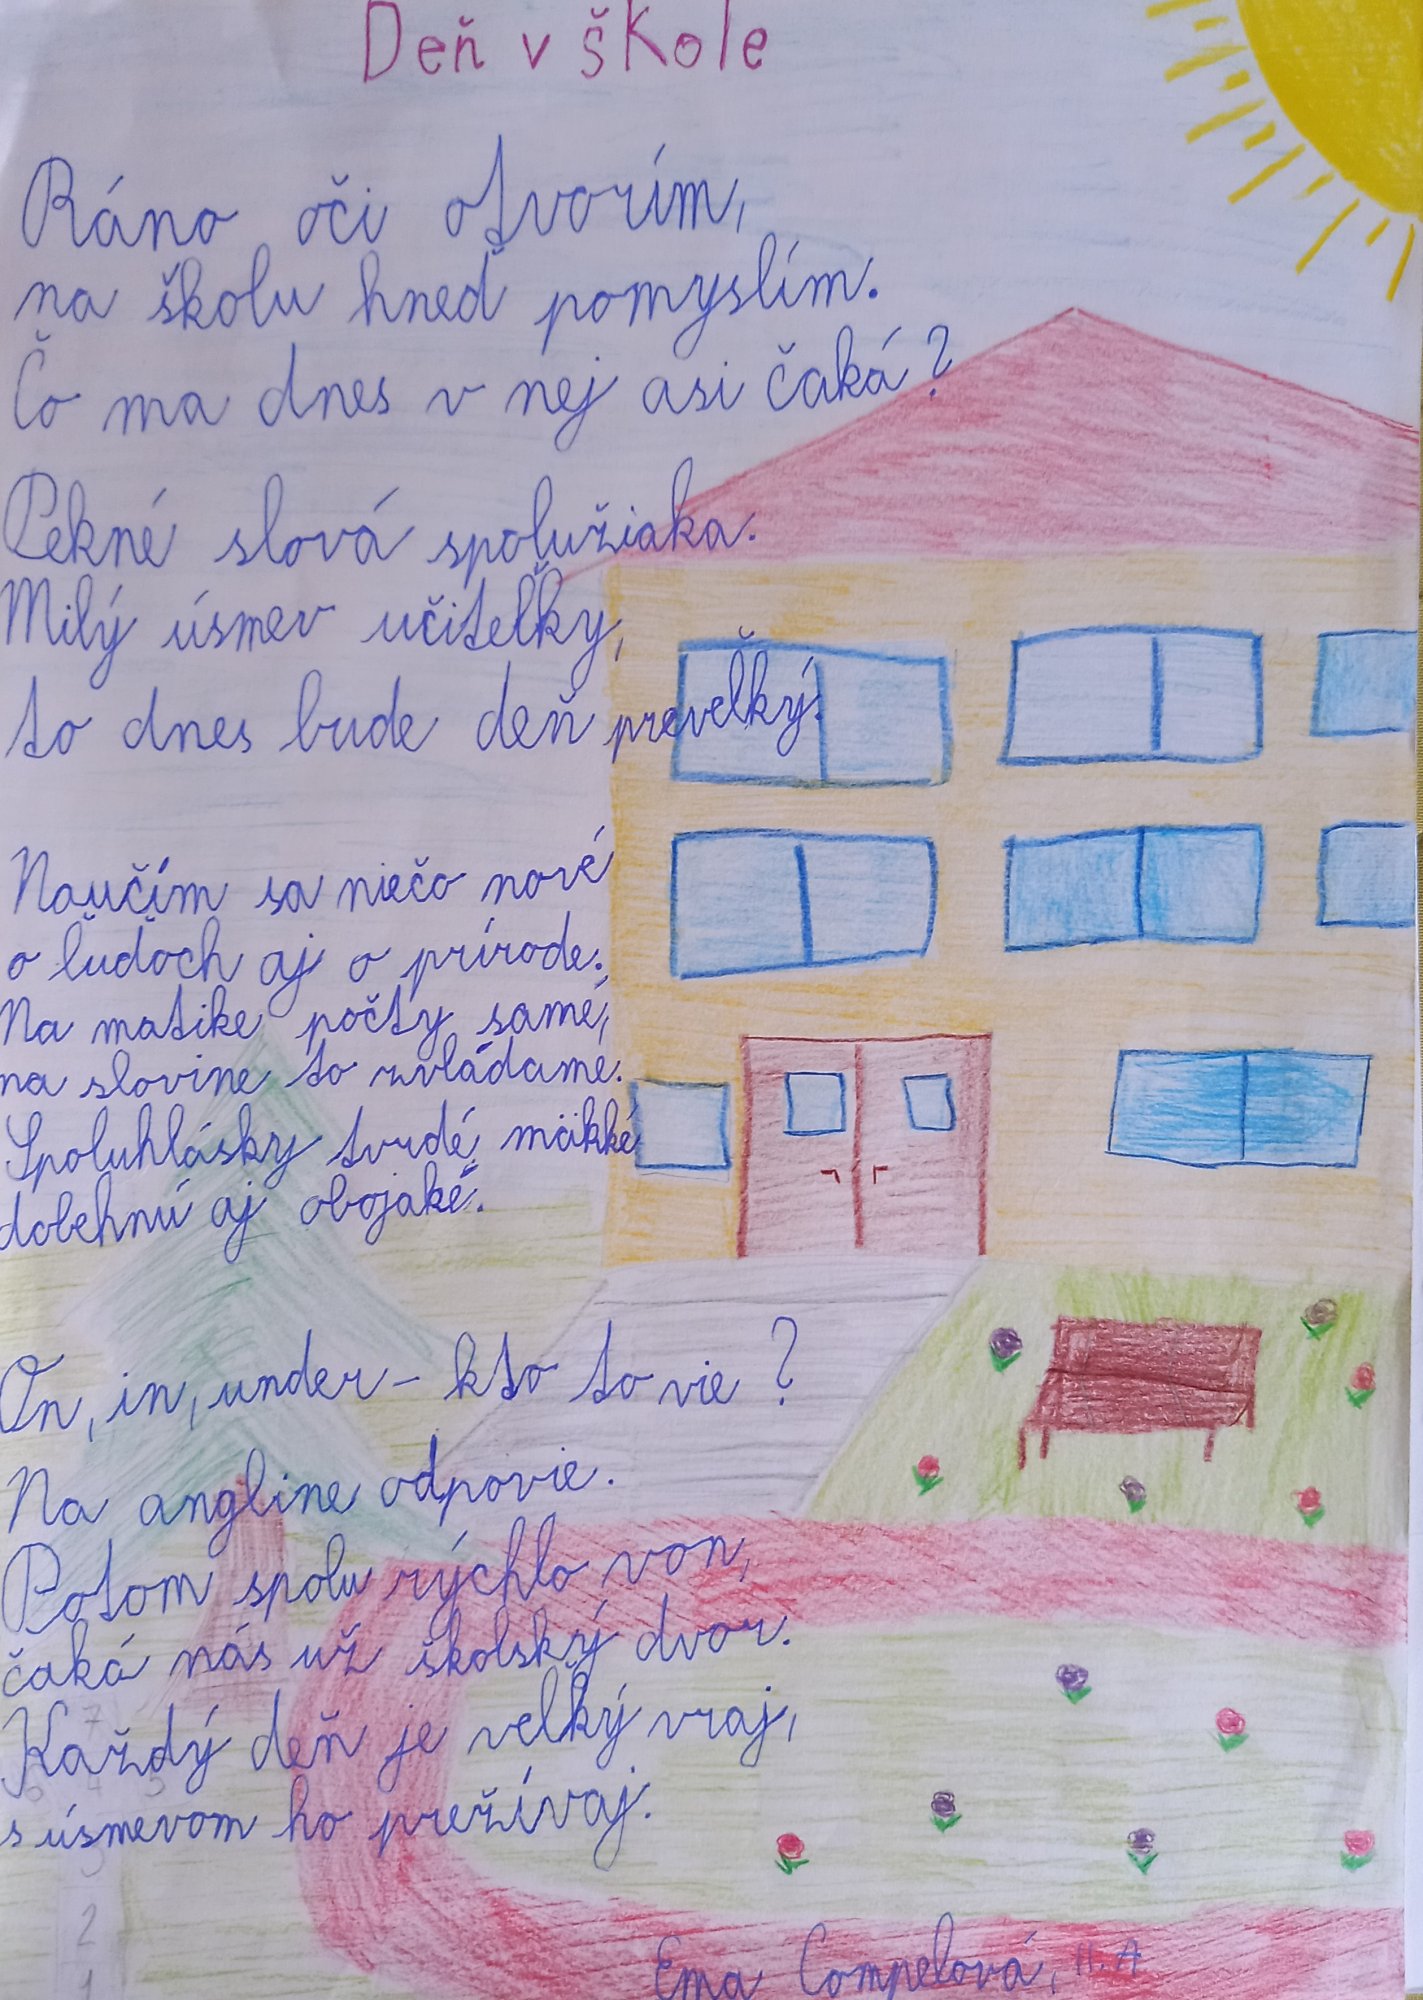 Deň v škole
Ráno oči otvorím,
na školu hneď pomyslím.
Čo ma dnes v nej asi čaká?
Pekné slová spolužiaka.
Milý úsmev učiteľky,
to dnes bude deň preveľký.
Naučím sa niečo nové
o ľuďoch aj o prírode.
Na matike počty samé,
na slovine to zvládame.
Spoluhlásky tvrdé, mäkké
dobehnú aj obojaké.
On, in, under - kto to vie?
Na angline odpovie.
Potom spolu rýchlo von,
čaká nás už školský dvor.
Každý deň je veľký vraj,
s úsmevom ho prežívaj.
7
6 4 5
3
2
1
Ema Compelová, II.A